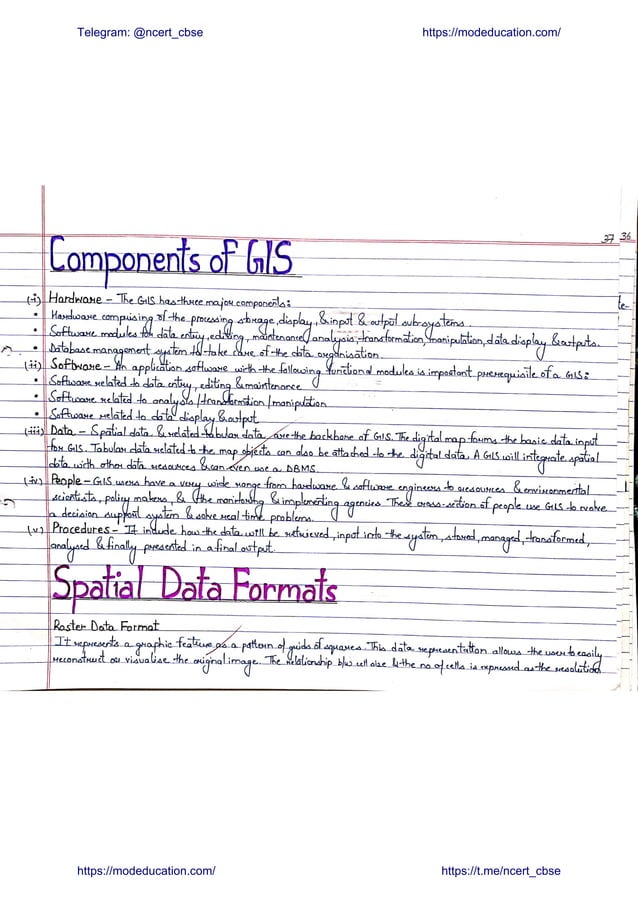 Telegram: @ncert_cbse https://modeducation.com/
37 36
Components of GIS
(i) Hardware - The GIS has three major components:
• Hardware comprising of the processing storage, display, & input & output subsystems.
• Software modules for data entry, editing, maintenance, analysis, transformation, manipulation, data display & outputs.
• Database management system to take care of the data organisation.
(ii) Software - An application software with the following functional modules is important prerequisite of a GIS:
• Software related to data entry, editing & maintenance
• Software related to analysis/transformation/manipulation
• Software related to data display & output
(iii) Data - Spatial data & related tabular data are the backbone of GIS. The digital map forms the basic data input
for GIS. Tabular data related to the map objects can also be attached to the digital data. A GIS will integrate spatial
data with other data resources & can even use a DBMS.
(iv) People - GIS users have a very wide range from hardware & software engineers to resources & environmental
scientists, policy makers, & the monitoring & implementing agencies. These cross-section of people use GIS to evolve
a decision support system & solve real time problems.
(v) Procedures - It include how the data will be retrieved, input into the system, stored, managed, transformed,
analysed & finally presented in a final output.
Spatial Data Formats
Raster Data Format
It represents a graphic feature as a pattern of grids of squares. This data representation allows the user to easily
reconstruct or visualise the original image. The relationship b/w cell size & the no of cells is expressed as the resolution
https://modeducation.com/ https://t.me/ncert_cbse